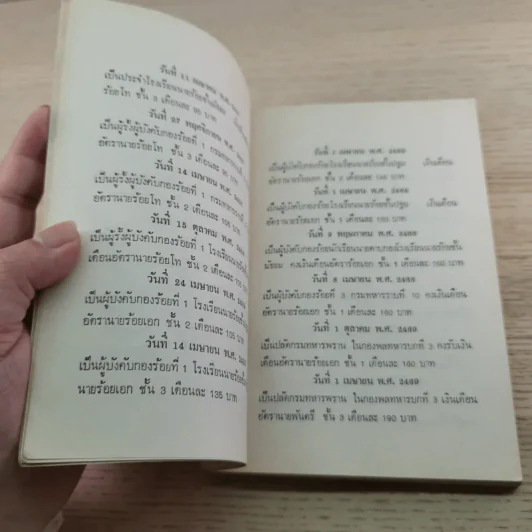 วันที่ 11 เมษายน พ.ศ.
เป็นประจำโรงเรียนนายร้อยชั้นมัธยม
ร้อยโท ชั้น 3 เดือนละ 95 บาท
วันที่ 27 พฤศจิกายน พ.ศ.
เป็นผู้รั้งผู้บังคับกองร้อยที่ 1 กรมทหาร
นายร้อยโท ชั้น 3 เดือนละ 95 บาท
วันที่ 14 เมษายน พ.ศ.
เป็นผู้รั้งผู้บังคับกองร้อยที่ 1 กรมทหาร
อัตรานายร้อยโท ชั้น 2 เดือนละ 105
วันที่ 15 ตุลาคม พ.ศ.
เป็นผู้รั้งผู้บังคับกองร้อยที่ 1 โรงเรียนนายร้อย
เดือนอัตรานายร้อยโท ชั้น 2 เดือนละ 105
วันที่ 24 เมษายน พ.ศ.
เป็นผู้บังคับกองร้อยที่ 1 โรงเรียนนายร้อย
อัตรานายร้อยเอก ชั้น 3 เดือนละ 135 บาท
วันที่ 14 เมษายน พ.ศ.
เป็นผู้บังคับกองร้อยที่ 1 โรงเรียนนายร้อยชั้น
นายร้อยเอก ชั้น 3 เดือนละ 135 บาท
วันที่ 1 เมษายน พ.ศ.
เป็นผู้บังคับกองร้อยโรงเรียนนายร้อยชั้นปฐม เงินเดือน
อัตรานายร้อยเอก ชั้น 2 เดือนละ 145 บาท
วันที่ 1 เมษายน พ.ศ.
เป็นผู้บังคับกองร้อยโรงเรียนนายร้อยชั้นปฐม เงินเดือน
อัตรานายร้อยเอก ชั้น 1 เดือนละ 160 บาท
วันที่ พฤษภาคม พ.ศ.
เป็นผู้บังคับกองร้อยนักเรียนนายดาบกองโรงเรียนนายร้อยชั้น
มัธยม คงเงินเดือนอัตรานายร้อยเอก ชั้น 1 เดือนละ 160 บาท
วันที่ เมษายน พ.ศ.
เป็นผู้บังคับกองร้อยที่ 3 กรมทหารราบที่ 10 คงเงินเดือน
อัตรานายร้อยเอก ชั้น 1 เดือนละ 160 บาท
วันที่ 1 ตุลาคม พ.ศ. 2469
เป็นปลัดกรมทหารพราน ในกองพลทหารบกที่ 3 คงรับเงิน
เดือนอัตรานายร้อยเอก ชั้น 1 เดือนละ 160 บาท
วันที่ 1 เมษายน พ.ศ. 2469
เป็นปลัดกรมทหารพราน ในกองพลทหารบกที่ 3 เงินเดือน
อัตรานายพันตรี ชั้น 3 เดือนละ 190 บาท